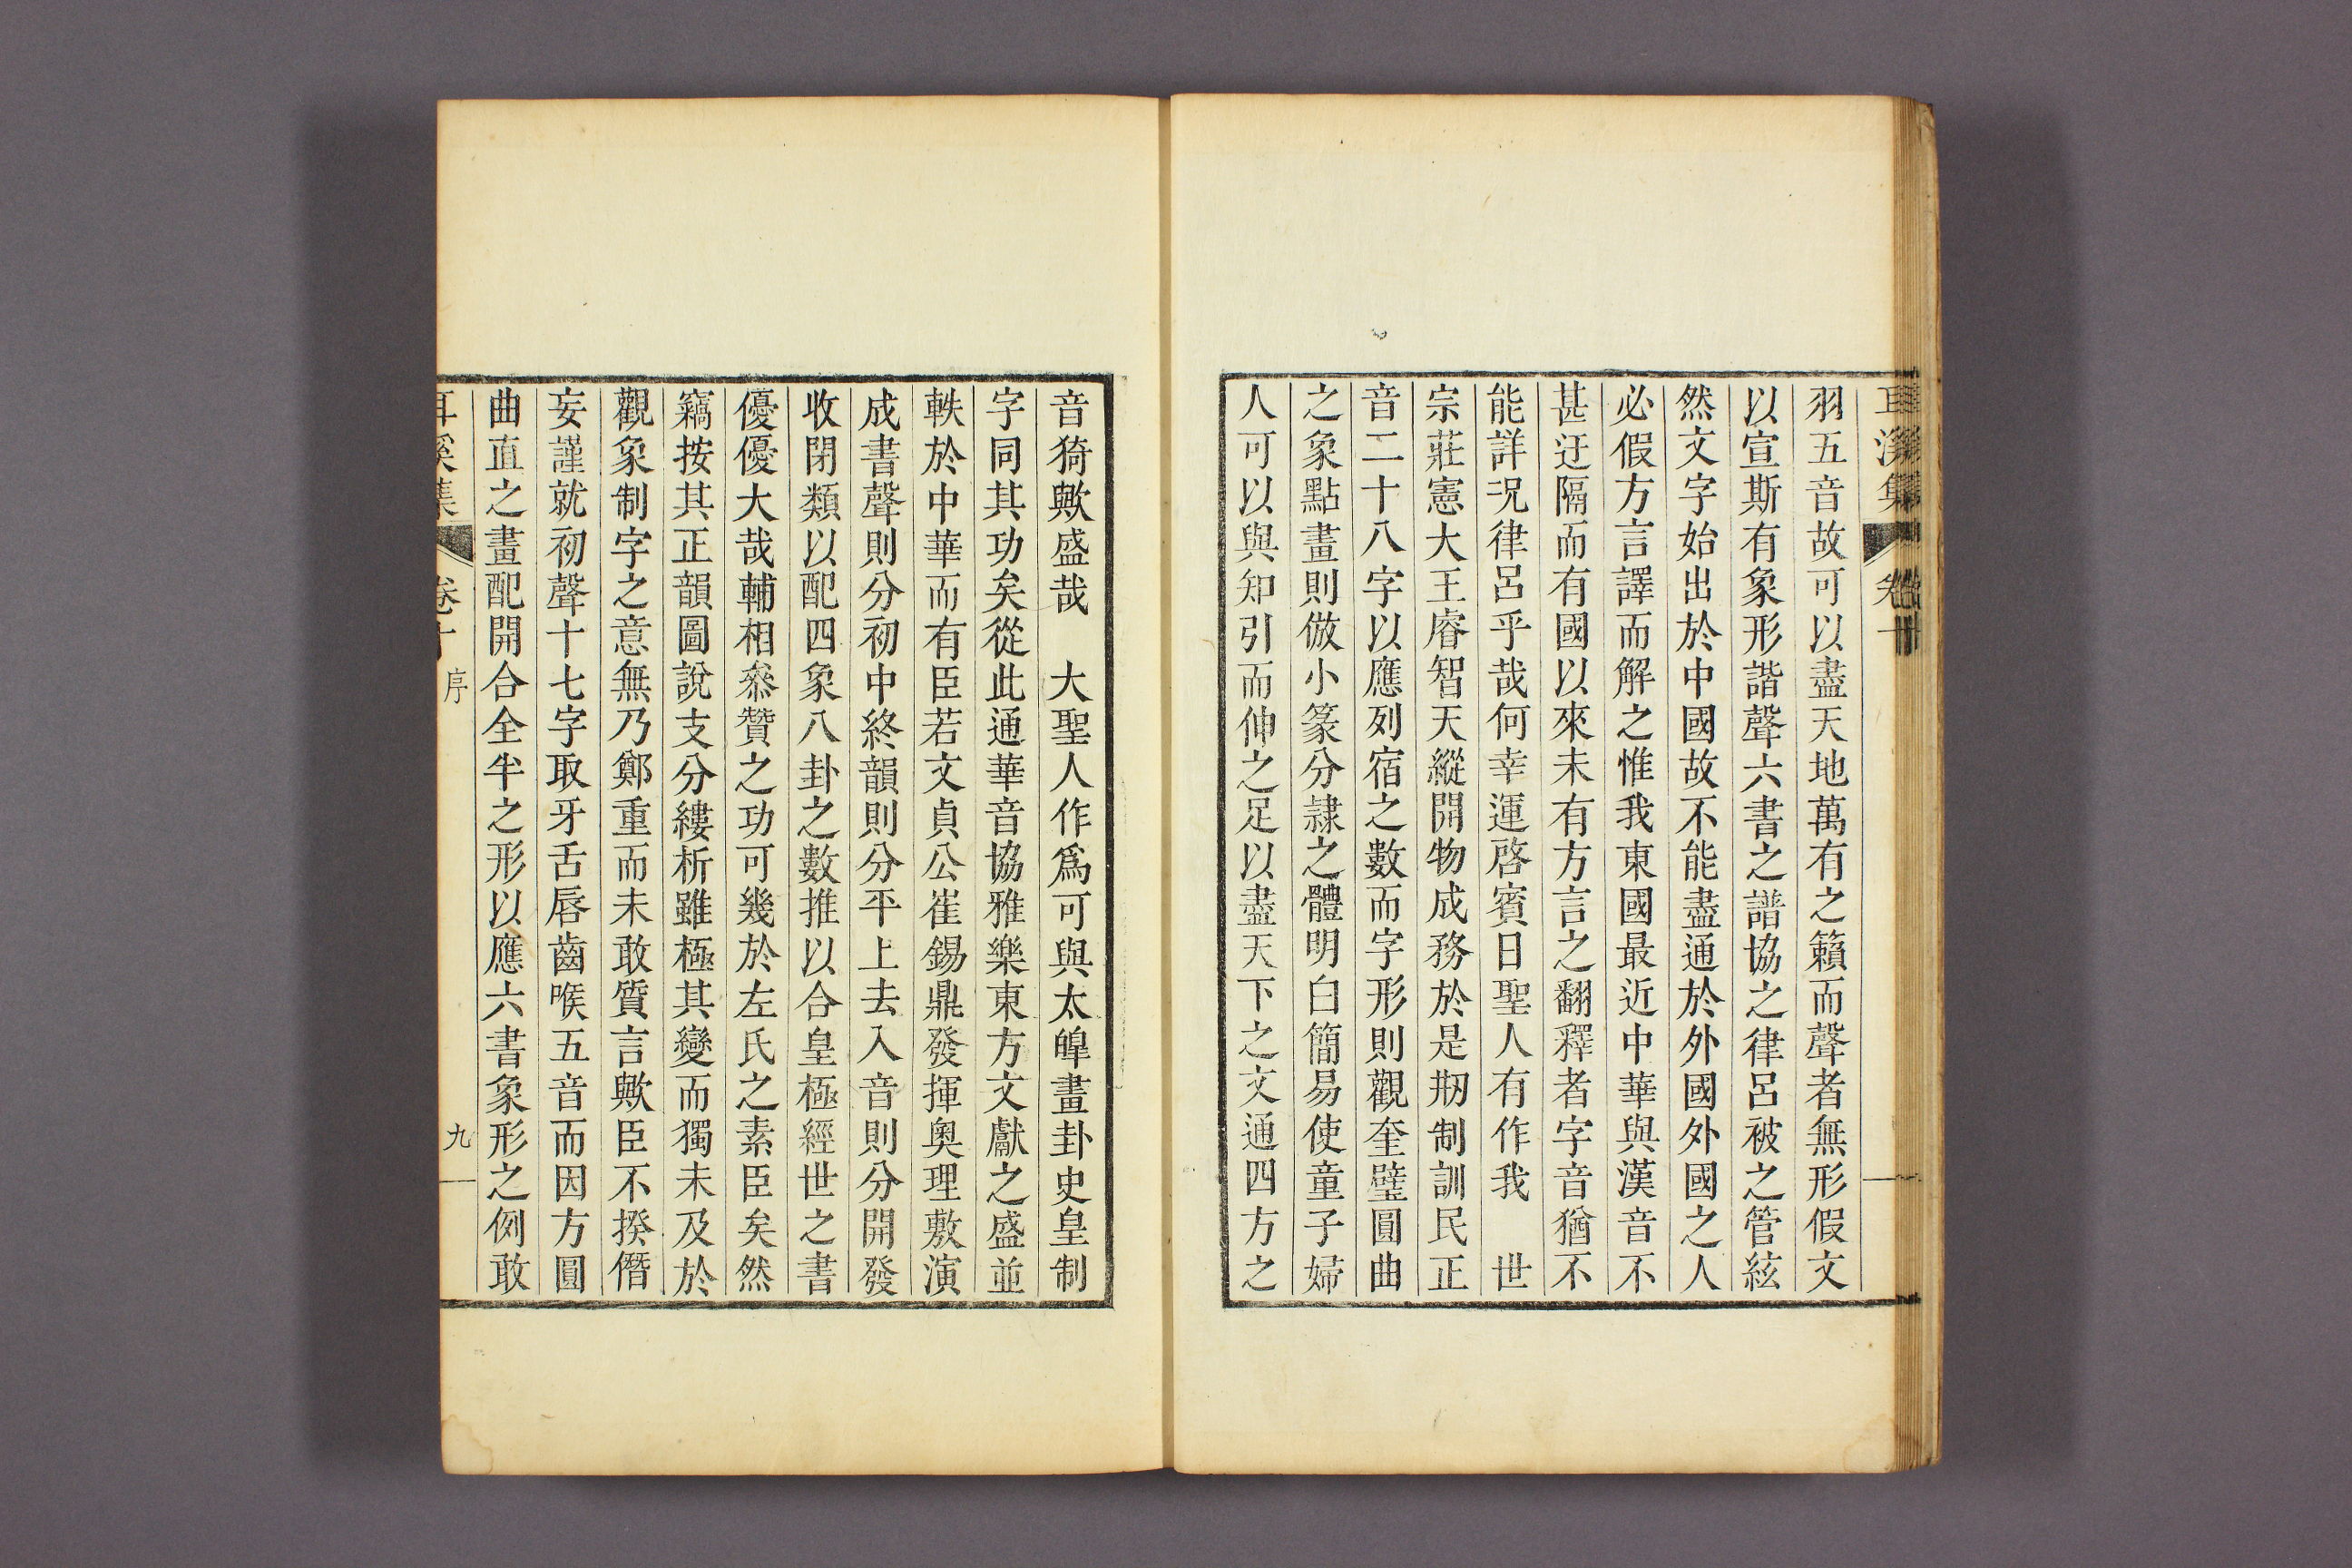 耳溪集 卷十
羽五音故可以盡天地萬有之籟而聲者無形假文
以宣斯有象形諧聲六書之譜協之律呂被之管絃
然文字始出於中國故不能盡通於外國外國之人
必假方言譯而解之惟我東國最近中華與漢音不
甚迂隔而有國以來未有方言之翻釋者字音猶不
能詳况律呂乎哉何幸運啓賓日聖人有作我　世
宗莊憲大王睿智天縱開物成務於是刱制訓民正
音二十八字以應列宿之數而字形則觀奎璧圓曲
之象點畫則倣小篆分隷之體明白簡易使童子婦
人可以與知引而伸之足以盡天下之文通四方之
音猗歟盛哉　大聖人作爲可與太皥畫卦史皇制
字同其功矣從此通華音協雅樂東方文獻之盛並
軼於中華而有臣若文貞公崔錫鼎發揮奧理敷演
成書聲則分初中終韻則分平上去入音則分開發
收閉類以配四象八卦之數推以合皇極經世之書
優優大哉輔相叅贊之功可幾於左氏之素臣矣然
竊按其正韻圖說支分縷析雖極其變而獨未及於
觀象制字之意無乃鄭重而未敢質言歟臣不揆僭
妄謹就初聲十七字取牙舌脣齒喉五音而因方圓
曲直之畫配開合全半之形以應六書象形之例敢
耳溪集 卷十 序 九